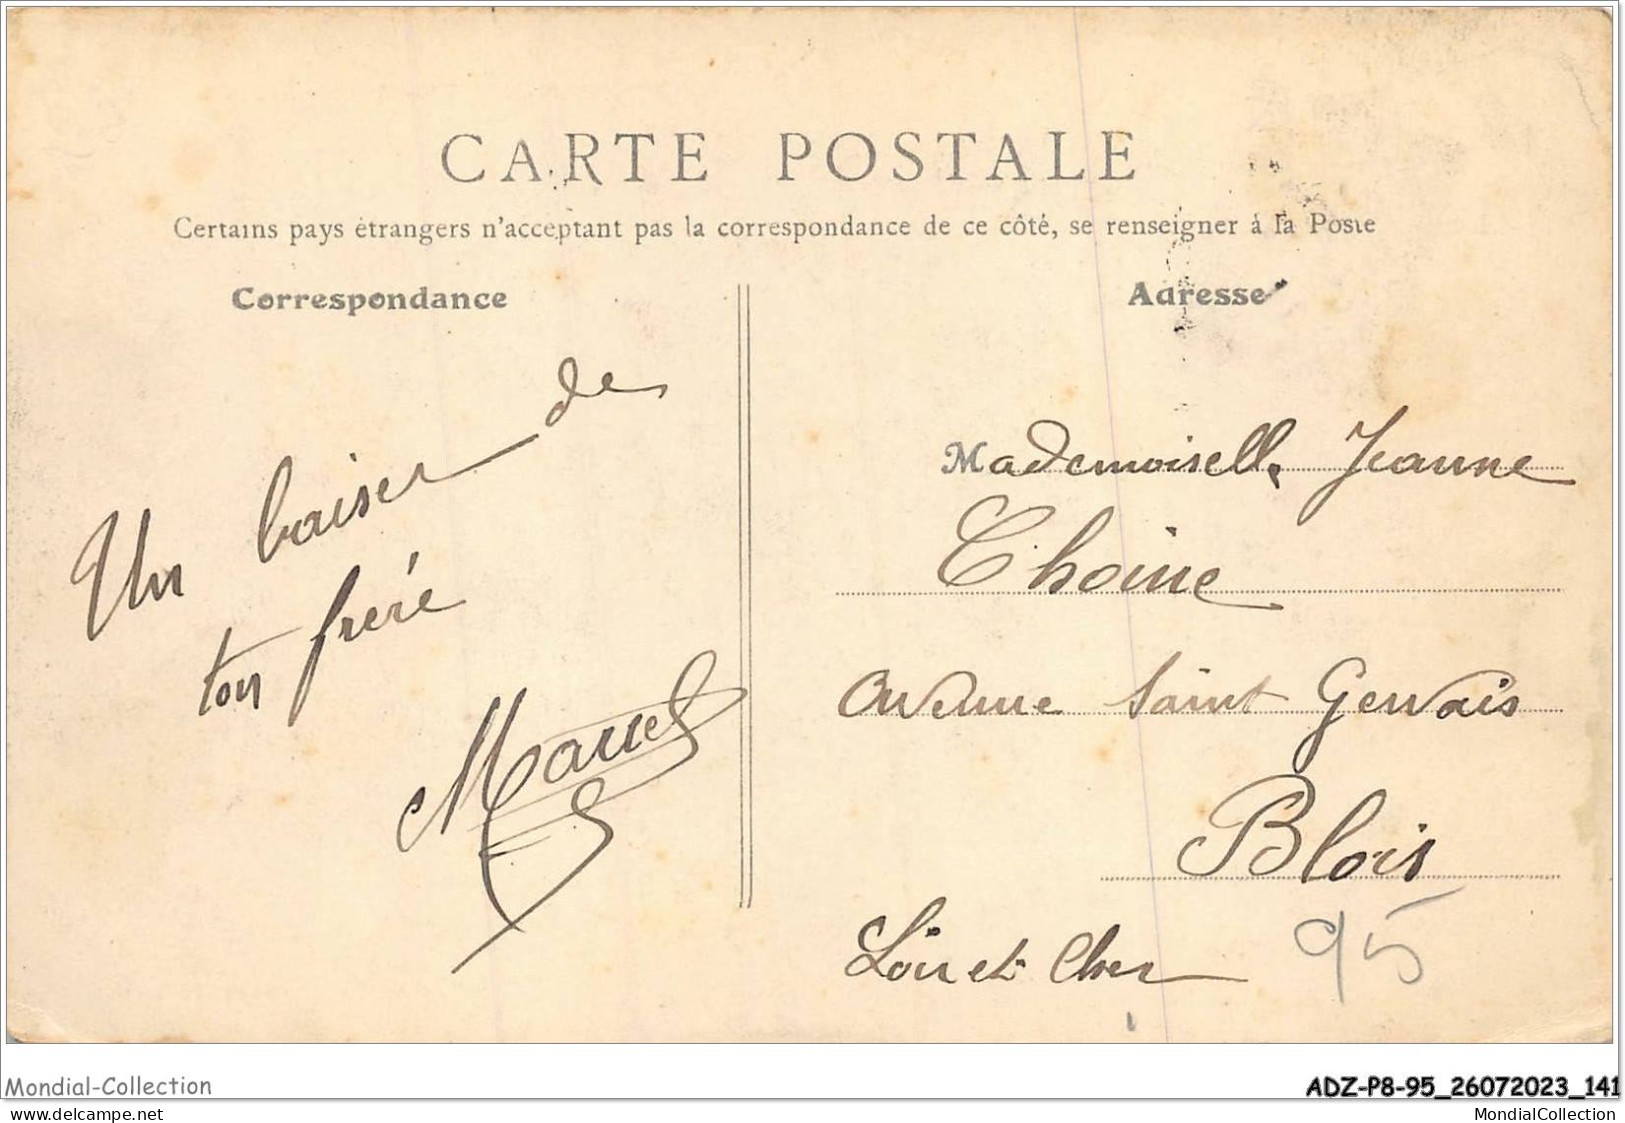 CARTE POSTALE
Certains pays étrangers n'acceptant pas la correspondance de ce côté, se renseigner à la Poste
Correspondance
Adresse
Un baiser de
ton frère
Marcel
Mademoiselle Jeanne
Thoine
Avenue Saint Gervais
Blois
Loir et Cher
95
Mondial-Collection
ADZ-P8-95_26072023_141
delcampe.net
MondialCollection